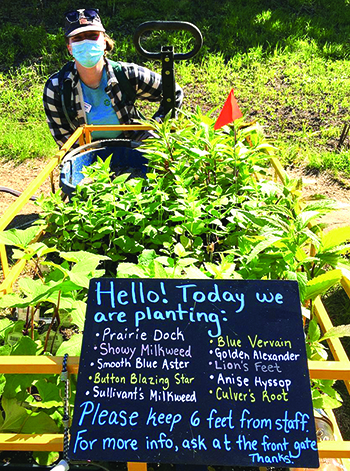 Hello! Today we
are planting:
• Prairie Dock
• Showy Milkweed
• Smooth Blue Aster
• Button Blazing Star
• Sullivant's Milkweed
• Blue Vervain
• Golden Alexander
• Lion's Feet
• Anise Hyssop
• Culver's Root
Please keep 6 feet from staff.
For more info, ask at the front gate
Thanks!